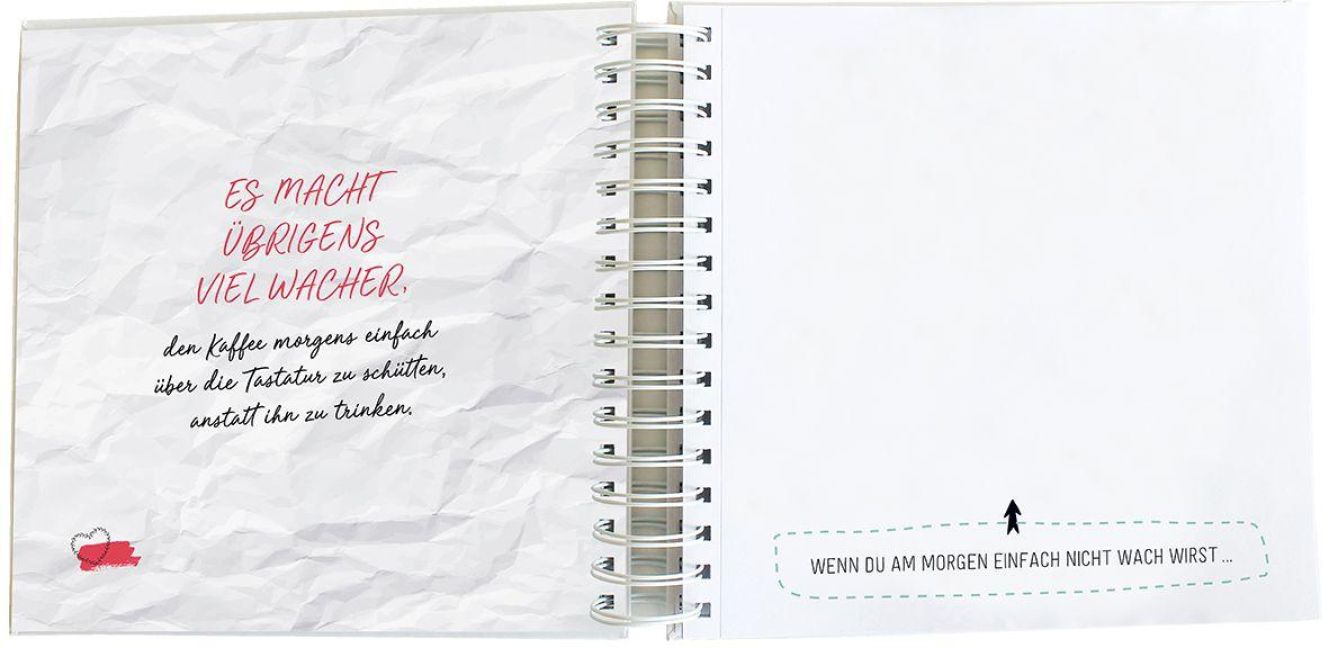 ES MACHT
ÜBRIGENS
VIEL WACHER,
den Kaffee morgens einfach
über die Tastatur zu schütten,
anstatt ihn zu trinken.
WENN DU AM MORGEN EINFACH NICHT WACH WIRST ...